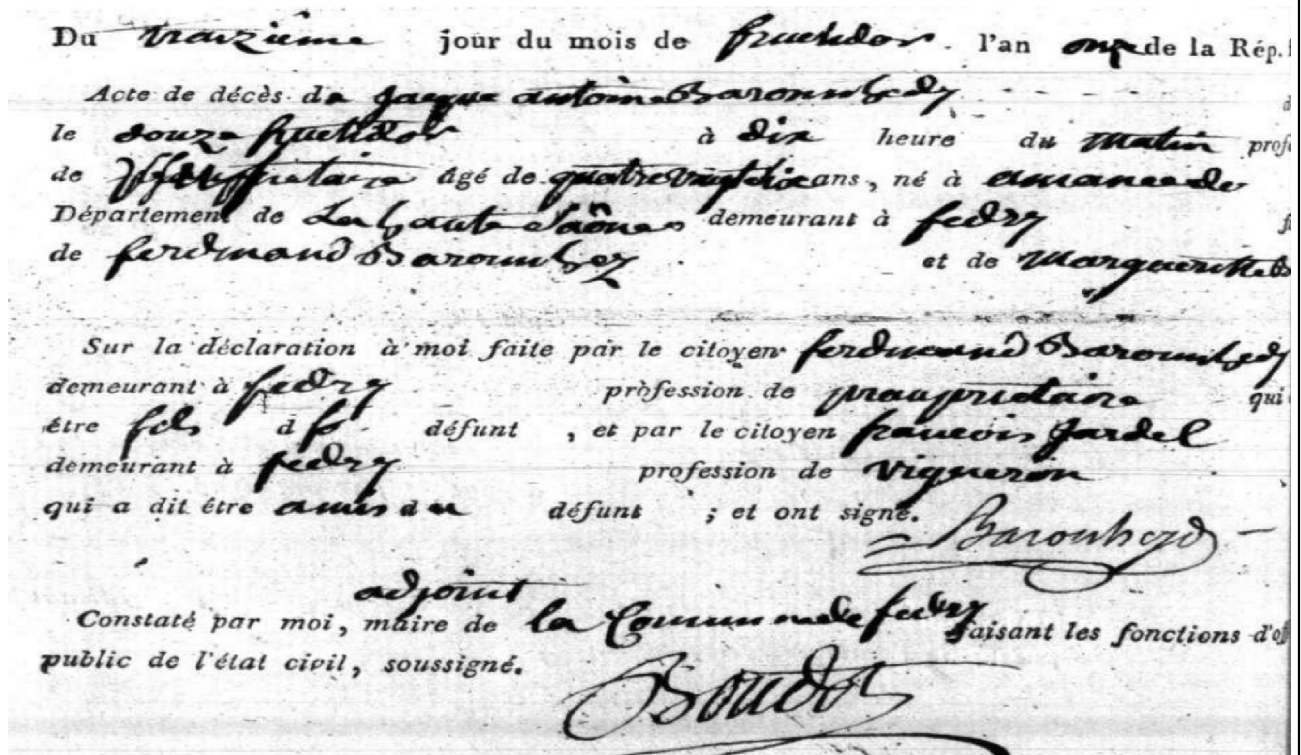 Du traizième jour du mois de fructidor l'an onze de la Rép.
Acte de décès de jacque antoine Baronnhedy
le douze fructidor à dix heure du matin prof
de âgé de quatre vingt dix ans, né à amance de
Département de La haute Saône demeurant à fedry
de ferdinand Barounhez et de Margueritte
Sur la déclaration à moi faite par le citoyen ferdinand Barounhedy
demeurant à fedry profession de praupriétaire qui
être fils d défunt , et par le citoyen francois Jardel
demeurant à fedry profession de vigneron
qui a dit être amis du défunt ; et ont signé. Baronhezd
adjoint
Constaté par moi, maire de la Commune de fedry faisant les fonctions d'of
public de l'état civil, soussigné.
Boudot